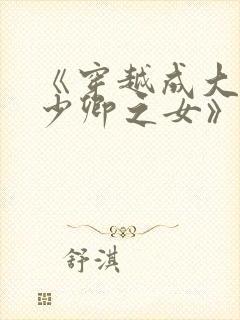 《穿越成大
少卿之女》
舒淇